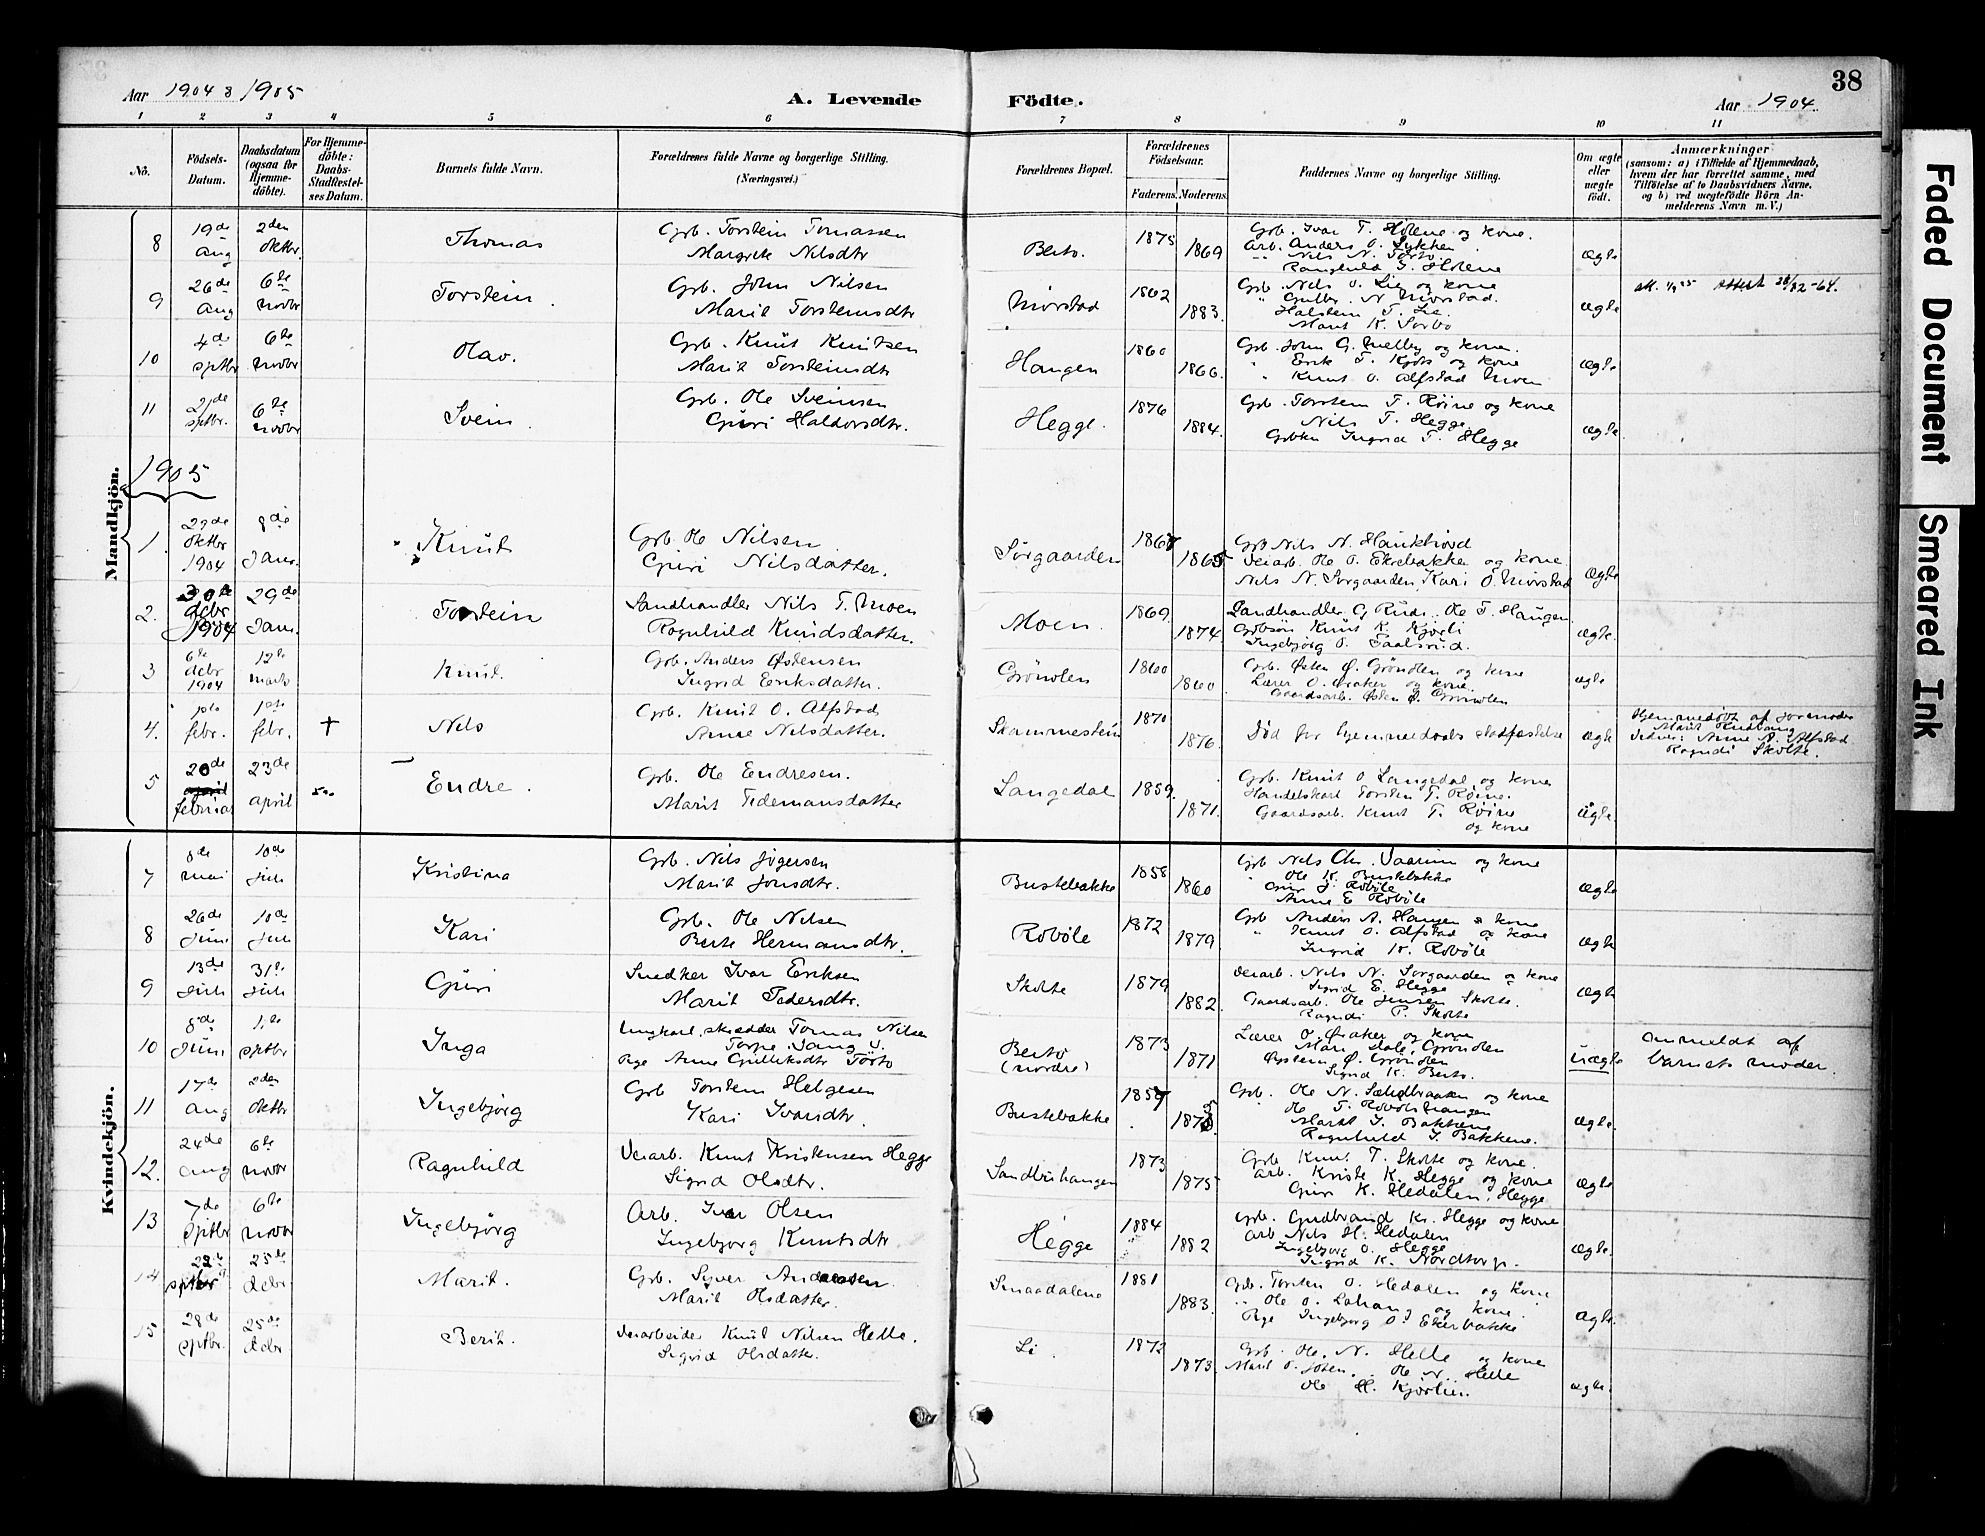 38
Aar 1904 & 1905
A. Levende Födte.
Aar 1904.
1 2 3 4 5 6 7 8 9 10 11
No.
Födsels-Datum.
Daabsdatum (ogsaa for Hjemme-döbte).
For Hjemme-döbte: Daabs-Stadfæstel-ses Datum.
Barnets fulde Navn.
Forældrenes fulde Navne og borgerlige Stilling. (Næringsvei.)
Forældrenes Bopæl.
Forældrenes Födselsaar.
Faderens. Moderens.
Faddernes Navne og borgerlige Stilling.
Om ægte eller uægte födt.
Anmærkninger
(saasom: a) i Tilfælde af Hjemmedaab, hvem der har forrettet samme, med Tilföielse af to Daabsvidners Navne, og b) ved uægtefödte Börn An-melderens Navn m. V.)
Mandkjön.
8 19de aug 2den oktbr Thomas Grb. Torstein Tomassen Margrete Nilsdtr Berto. 1875 1869 Grb. Ivar T. Holene og kone. Arb. Anders O. Lykken Nils N. Torto Ragnhild T. Holene ægte
9 26de aug 6te novbr Torstein. Grb. John Nilsen Marit Torsteinsdtr Morstad 1862 1883. Grb. Nels O. Lie og kone " Gulbr. N. Morstad. Halstein T. Lie. Marit K. Sorbo ægte
10 4de sptbr 6te novbr Olav. Grb. Knut Knutsen Marit Torsteinsdtr Haugen 1860 1866. Grb. John G. Melby og kone. " Erik T. Kjøs og kone " Knut O. Alfstad Moen ægte
11 21de sptbr. 6te novbr Svein. Grb. Ole Sveinsen Guri Haldorsdtr. Hegge. 1876 1884. Grb. Torstein T. Røine og kone Nils T. Hegge Ingrid T. Hegge ægte.
1905
1. 27de oktbr 1904 8de Janr. Knut Grb. Ole Nilsen Guri Nilsdatter. Sørgaarden Grb Nils N. Veiarb. Ole O. Ekrebakke og kone Nils N. Sørgaarden Kari O. Morstad ægte
2. 30te dcbr 1904 29de Janr. Torstein Landhandler Nils T. Moen Ragnhild Knudsdatter. Moen. 1869 1874. Landhandler G Rudi. Ole T. Haugen Grbsøn Knut K. Kjøsli Ingebjørg O. ægte.
3 6te dcbr 1904 12te marts Knut. Grb. Anders Østensen Ingrid Eriksdatter. Grønolen 1860 1860. Grb. Østen Ø. Grønolen og kone Lærer O. Øraker og kone. Gaardsarb. Østen Ø. Grønolen ægte
4. 1ste febr. 1ste febr. + Nils Grb. Knut O. Alfstad Anne Nilsdatter. Skammestein 1870 1876. Død før hjemmedaabs stadfæstelse ægte Hjemmedøbt af jormoder Marit Vidner: Anne N. Alfstad Ragndi Skolte.
5 20de februar 23de april Endre. Grb. Ole Endresen. Marit Tidemansdatter Langedal 1859. 1871. Grb. Knut O Langedal og kone Handelskarl Torsten T. Røine. Gaardsarb. Knut T. Røine og kone ægte.
Kvindekjön.
7 8de mai 10de Juli Kristina Grb. Nils Jogersen Marit Jonsdtr. Bustebakke 1858 1860 Grb Nels Chr. Vaarum og kone " Ole K. Bustebakke Guri J. Robøle Anne E Robøle ægte
8 26de Juni 10de Juli Kari Grb. Ole Nilsen Berte Hermansdtr. Robøle 1872 1879. Grb Anders A. Haugen & kone " Knut O. Alfstad & kone Ingrid K. Robøle ægte
9 13de Juli 31te Juli Guri Snedker Ivar Eriksen Marit Pedersdtr. Skolte 1879 1882. Veiarb. Nils N. Sørgaarden & kone Sigrid E. Hegge Gaardsarb. Ole Jensen Skolte. Ragndi P. Skolte ægte
10 8de Juni sptbr Inga Ungkarl, skrædder Tomas Nilsen Pige Anne Gulliksdtr Torto Berto (nordre) 1873 1871 Lærer O. Øraker og kone Mari Grønolen Øystein Ø. Grønolen Sigrid K. Berto. uægte anmeldt af barnets moder.
11 17de aug 2den oktbr Ingebjørg Grb Torstein Helgesen Kari Ivarsdtr. Bustebakke Grb. Ole N. og kone " Ole T. Robølshaugen Marit I. Bakkene Ragnhild I. Bakkene. ægte.
12. 24de aug 6te novbr Ragnhild Veiarb. Knut Kristensen Hegge Sigrid Olsdtr. Sandbuhaugen 1873 1875 Grb Knut T. Skolte og kone. arb. Kriste K. Hegge og kone Guri K. Hedalen, Hegge ægte
13 7de sptbr 6te novbr Ingebjørg Arb. Ivar Olsen Ingebjørg Knutsdtr Hegge 1884 1882 Grb. Gudbrand Kr. Hegge og kone Arb Nils H. Hedalen Ingebjørg O. Hegge Ingrid K. Nordtorp. ægte.
14 22de sptbr 25de dcbr Marit. Grb. Syver Andersen. Marit Olsdatter. Smaadalene 1881 1883. Grb. Torsten O. Hedalen og kone " Ole O. Lohaug og kone. Pige Ingebjørg O. Ekerbakke ægte.
15 28de sptbr. 25de dcbr Berit. Veiarbeider Knut Nilsen Helle. Sigrid Olsdatter. Li. 1872 1873. Grb. Ole N. Helle og kone Marit O. Ole N. Helle Ole H. Kjørlien. ægte.
Faded Document
Smeared Ink